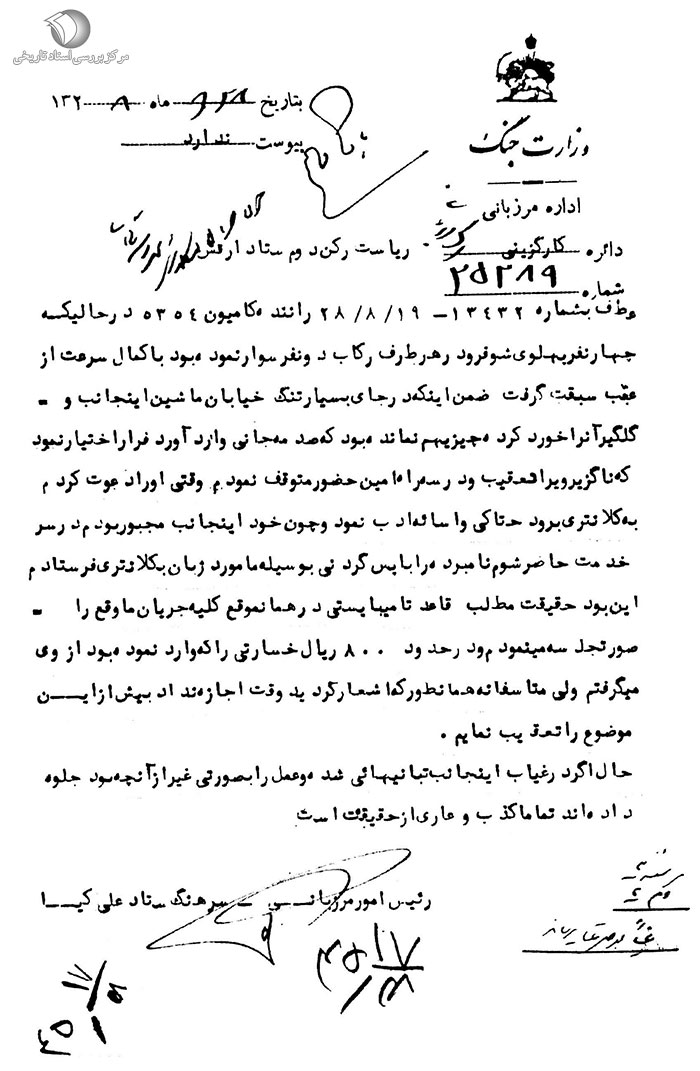 مرکز بررسی اسناد تاریخی
وزارت جنگ
بتاریخ ماه ۸ ۱۳۲
پیوست ندارد
اداره مرزبانی
دائره کارگزینی
شماره ۲۵۲۸۹
ریاست رکن دوم ستاد ارتش
عطف بشماره ۱۳۴۳۲ - ۲۸/۸/۱۹ راننده کامیون ۵۳۵۴ در حالیکه
چهار نفر پهلوی شوفر و در هر طرف رکاب دو نفر سوار نموده بود با کمال سرعت از
عقب سبقت گرفت ضمن اینکه در جای بسیار تنگ خیابان ماشین اینجانب و -
گلگیر آنرا خورد کرده چیزی هم نمانده بود که صدمه جانی وارد آورد فرار اختیار نمود
که ناگزیر ویرا تعقیب و در سه راه امین حضور متوقف نمودم وقتی او را دعوت کردم
به کلانتری برود حتاکی و اسائه ادب نمود و چون خود اینجانب مجبور بودم در سر
خدمت حاضر شوم نامبرده را با پس گردنی بوسیله مامور دژبان بکلانتری فرستادم
این بود حقیقت مطلب قاعدتا میبایستی در همان موقع کلیه جریان ماوقع را -
صورتجلسه مینمودم و در حدود ۸۰۰ ریال خسارتی را که وارد نموده بود از وی
میگرفتم ولی متاسفانه همانطور که اشعار گردید وقت اجازه نداد بیش از ایـن
موضوع را تعقیب نمایم .
حال اگر در غیاب اینجانب تبانیهائی شده و عمل را بصورتی غیر از آنچه بود جلوه
داده اند تماما کذب و عاری از حقیقت است
رئیس امور مرزبانی - سرهنگ ستاد علی کیـا